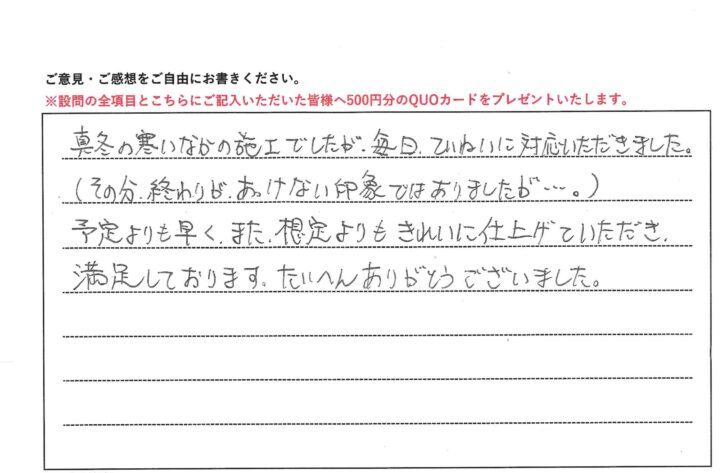 ご意見・ご感想をご自由にお書きください。
※設問の全項目とこちらにご記入いただいた皆様へ500円分のQUOカードをプレゼントいたします。
真冬の寒いなかの施工でしたが、毎日、ていねいに対応いただきました。
(その分、終わりが、あっけない印象ではありましたが…。)
予定よりも早く、また、想定よりもきれいに仕上げていただき、
満足しております。たいへんありがとうございました。